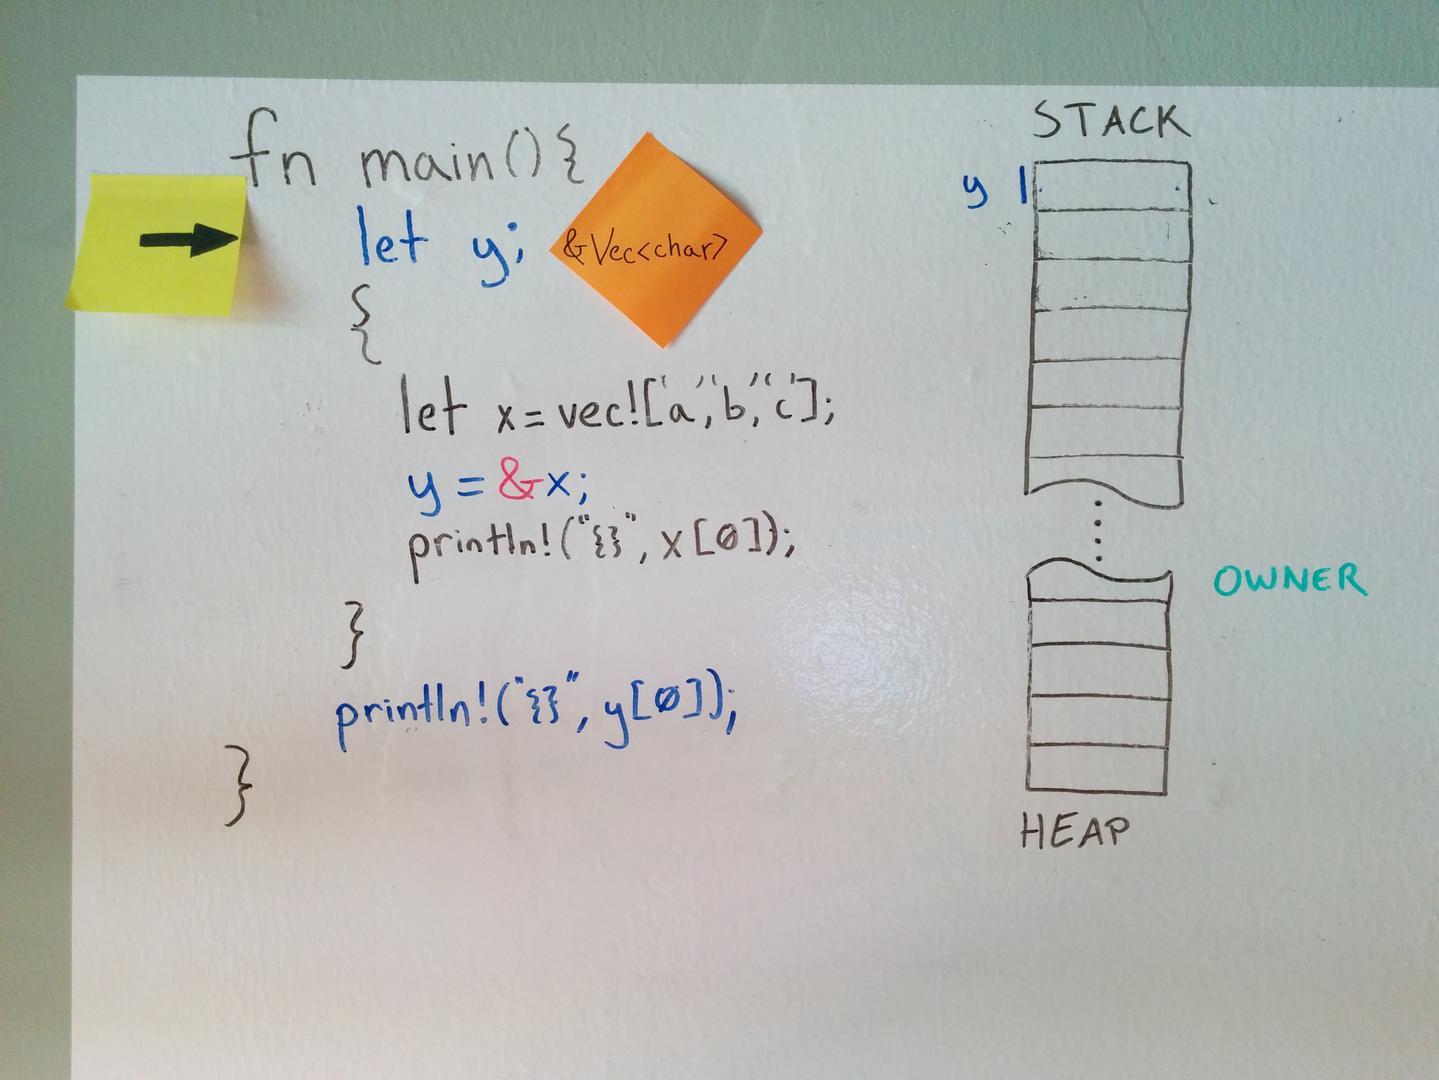 fn main(){
let y; &Vec<char>
{
let x = vec!['a','b','c'];
y = &x;
println!("{}", x[0]);
}
println!("{}", y[0]);
}
STACK
y
OWNER
HEAP